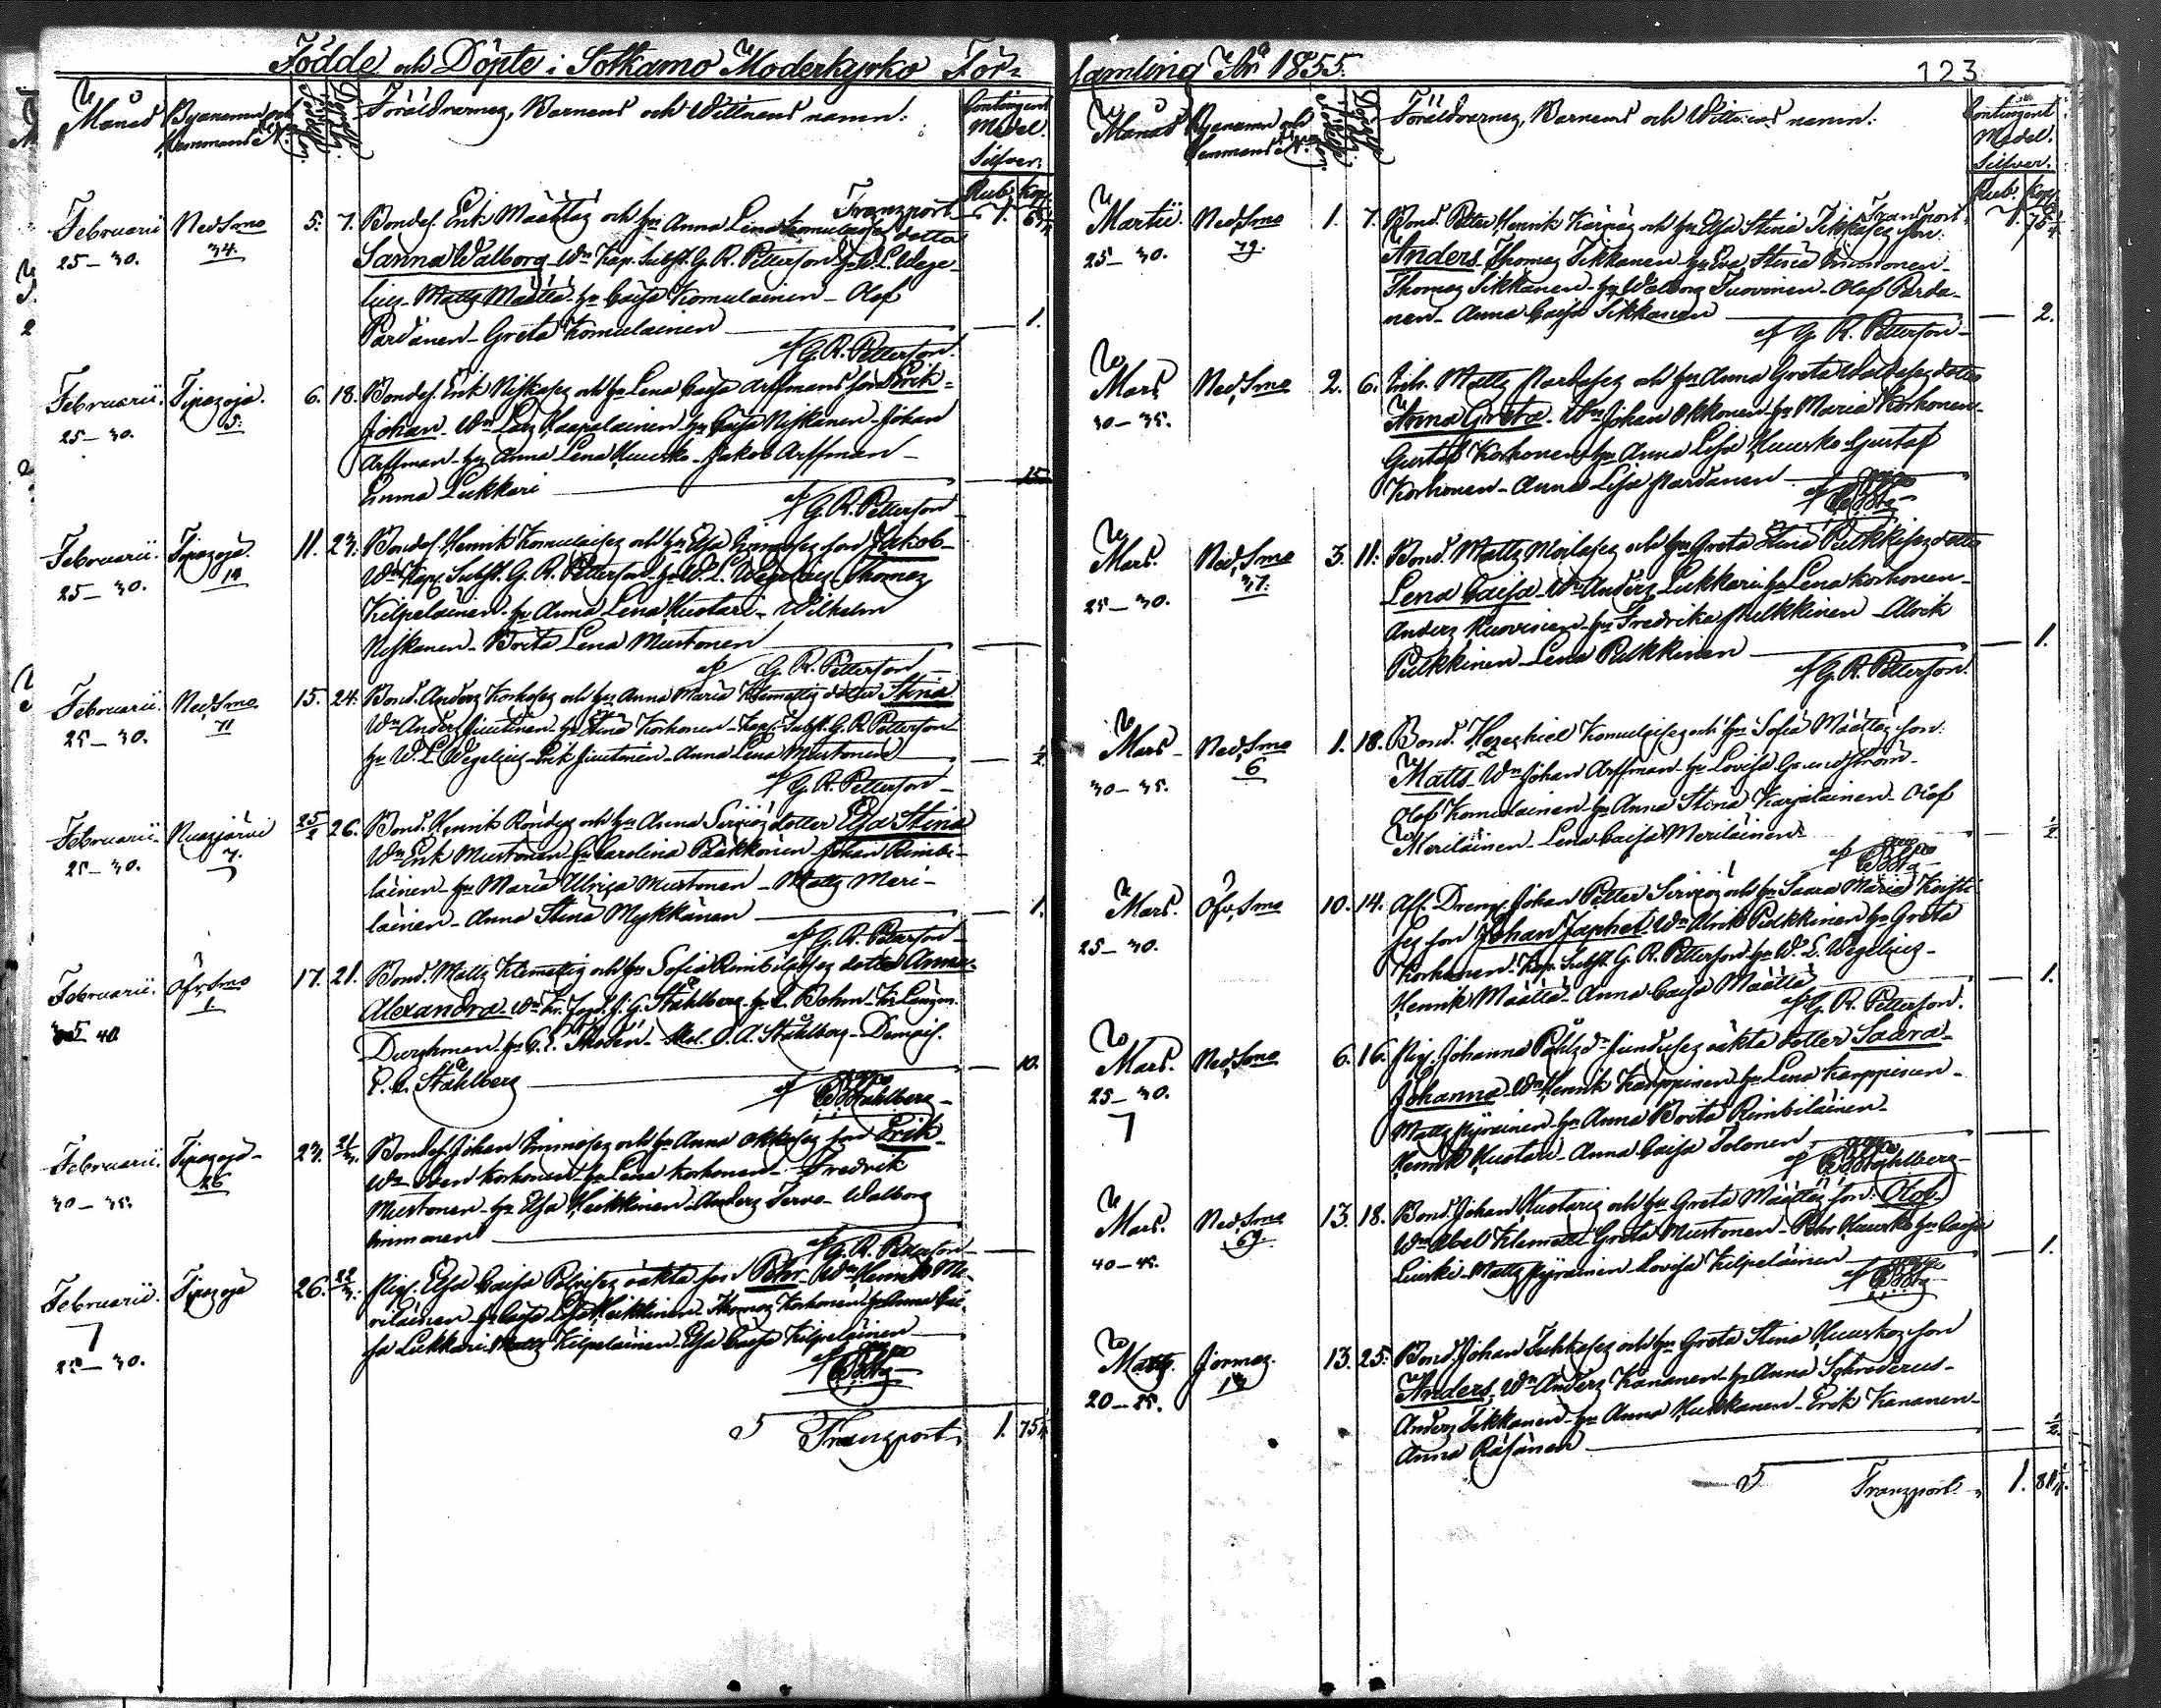 Födde och Döpte i Sotkamo Moderkyrko För-
samling År 1855.
123
Månad
Byanamn och
Hemmans No.
Föräldrarnes, Barnens och Wittnens namn.
Contingent
Medel.
Silfver.
Rub. Kop.
Transport 1.
Februarii Ned. Smo 5. 7. Bond. Erik Määttäs och hu Anna Lena dotter
25–30. 34. Sanna Walborg. Wn Kap. Subst. G. R. Petterson hu W. L. Wege-
lius. Matts Määttä. hu Caisa Komulainen. Olof
Pardanen. Greta Komulainen — 1.
af G. R. Petterson.
Februarii. Tipasoja. 6. 18. Bond. Erik Niskases och hu Lena Caisa Arffmans son Erik
25–30. 5. Johan. Wn Lars Haapalainen hu Caisa Niskanen. Johan
Arffman. hu Anna Lena Huusko. Jakob Arffman
Emma Lukkari — 15
af G. R. Petterson
Februarii. Tipasoja. 11. 23. Bond. Henrik Komulaises och hu Elsa son Jakob
25–30. 14 Wn Kap. Subst. G. R. Petterson hu W. L. Wegelius. Thomas
Kilpeläinen. hu Anna Lena Huotari. Wilhelm
Niskanen. Brita Lena Mustonen
af G. R. Petterson
Februarii. Ned. Smo 15. 24. Bond. Anders Korhoses och hu Anna Maria Klemettis dotter Stina
25–30. 71 Wn Anders Juntunen. hu Stina Korhonen. Kap. Subst. G. R. Petterson
hu W. L. Wegelius. Erik Juntunen. Anna Lena Mustonen — ½
af G. R. Petterson
Februarii. Nuasjärvi 25/2 26. Bond. Henrik och hu Anna Serviös dotter Elsa Stina
25–30. 7. Wn Erik Mustonen. hu Carolina Pääkkönen. Johan Rimbi-
läinen. hu Maria Ulrica Mustonen. Matts Meri-
läinen. Anna Stina Mykkänen — 1.
af G. R. Petterson
Februarii. Öfv. Smo 17. 21. Bond. Matts Klemettis och hu Sofia Rimbiläises dotter Anna
40 1. Alexandra. Wn G. Ståhlberg. hu C. Bohm.
Durchman. hu C. E. O. A. Ståhlberg. Demois.
E. C. Ståhlberg — 10.
af Ståhlberg
Februarii. Tipasoja 23. 21/3. Bond. Johan Immoses och hu Anna Okkoses son Erik
30–35. 26 Wn Sven Korhonen. hu Lena Korhonen. Fredrik
Mustonen. hu Elsa Heikkinen. Anders Tervo. Walborg
Immonen
af G. R. Petterson
Februarii. Tipasoja 26. 22/3. Pig. Elsa Caisa oäkta son Pehr. Wn Henrik Me-
25–30. riläinen. hu Caisa Lisa Heikkinen. Thomas Korhonen hu Anna Cai-
sa Lukkari. Matts Kilpeläinen. Elsa Caisa Kilpeläinen
af
Transport 1. 75¼
Månad
Byanamn och
Hemmans No.
Föräldrarnes, Barnens och Wittnens namn.
Contingent
Medel.
Silfver.
Rub. Kop.
Transport 1. 75¼
Martii. Ned. Smo 1. 7. Bond. Petter Henrik Kärnäs och hu Elsa Stina Tikkases son
25–30. 79. Anders. Thomas Tikkanen. hu Eva Stina Immonen
Thomas Tikkanen. hu Walborg Tuovinen. Olof Parda-
nen. Anna Caisa Tikkanen — 2.
af G. R. Petterson
Mars Ned. Smo 2. 6. Inh. Matts Pardases och hu Anna Greta dotter
30–35. Anna Greta. Wn Johan Okkonen. hu Maria Korhonen
Gustaf Korhonen. hu Anna Lisa Huusko. Gustaf
Korhonen. Anna Lisa Pardanen
af
Mars. Ned. Smo 3. 11. Bond. Matts och hu Greta Stina Pulkkises dotter
25–30. 37. Lena Caisa. Wn Anders Lukkari. hu Lena Korhonen
Anders Huovinen. hu Fredrika Pulkkinen. Alrik
Pulkkinen. Lena Pulkkinen — 1.
af G. R. Petterson.
Mars Ned. Smo 1. 18. Bond. Hezekiel Komulaises och hu Sofia Määttäs son
30–35. 6 Matts. Wn Johan Arffman. hu Lovisa Grundström
Olof Komulainen. hu Anna Stina Karjalainen. Olof
Meriläinen. Lena Caisa Meriläinen — ½
af
Mars. Öfv. Smo 10. 14. Afl. Dreng. Johan Petter Serviös och hu Saara Maria
25–30. ses son Johan Japhet. Wn Alrik Pulkkinen hu Greta
Korhonen. Kap. Subst. G. R. Petterson. hu W. L. Wegelius
Henrik Määttä. Anna Caisa Määttä — 1.
af G. R. Petterson.
Mars. Ned. Smo 6. 16. Pig. Johanna oäkta dotter Saara
25–30. Johanna. Wn Henrik Karppinen. hu Lena Karppinen
Matts Pyrainen. hu Anna Brita Rimbiläinen
Henrik Huotari. Anna Caisa Tolonen
af Ståhlberg
Mars. Ned. Smo 13. 18. Bond. Johan Huotaris och hu Greta Määttäs son: Olof
40–45. 69. Wn Abel Klemetti. Greta Mustonen. Pehr Huusko. hu Caisa
Matts Pyrainen. Lovisa Kilpeläinen — 1.
af
Jormas. 13. 25. Bond. Johan och hu Greta Stina Huuskos son
20–25. Anders. Wn Anders Kananen. hu Anna Schroderus
Anders Tikkanen. hu Anna Kukkanen. Erik Kananen
Anna Räisänen — ½
Transport 1.